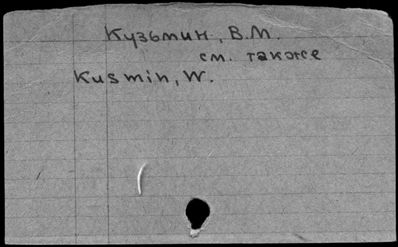 Кузьмин, В.М.
см. также
Kusmin, W.